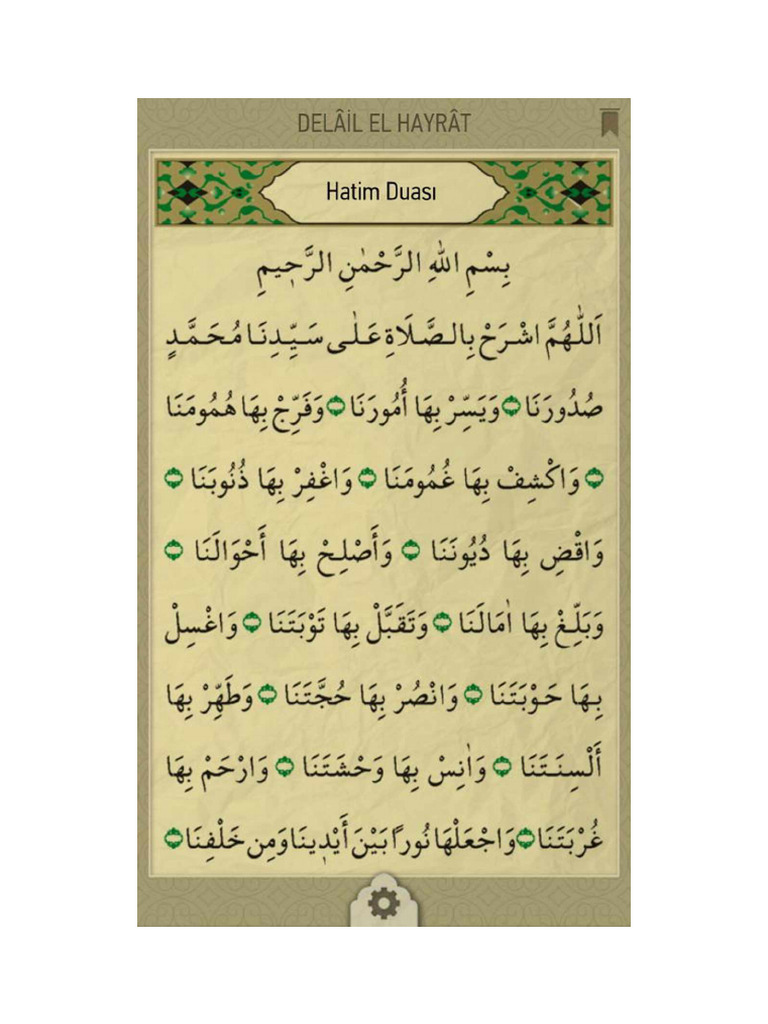 DELÂİL EL HAYRÂT
Hatim Duası
بِسْمِ اللهِ الرَّحْمٰنِ الرَّحٖيمِ
اَللّٰهُمَّ اشْرَحْ بِالصَّلَاةِ عَلٰى سَيِّدِنَا مُحَمَّدٍ
صُدُورَنَا ۝ وَيَسِّرْ بِهَا أُمُورَنَا ۝ وَفَرِّجْ بِهَا هُمُومَنَا
۝ وَاكْشِفْ بِهَا غُمُومَنَا ۝ وَاغْفِرْ بِهَا ذُنُوبَنَا ۝
وَاقْضِ بِهَا دُيُونَنَا ۝ وَأَصْلِحْ بِهَا أَحْوَالَنَا ۝
وَبَلِّغْ بِهَا اٰمَالَنَا ۝ وَتَقَبَّلْ بِهَا تَوْبَتَنَا ۝ وَاغْسِلْ
بِهَا حَوْبَتَنَا ۝ وَانْصُرْ بِهَا حُجَّتَنَا ۝ وَطَهِّرْ بِهَا
أَلْسِنَتَنَا ۝ وَاٰنِسْ بِهَا وَحْشَتَنَا ۝ وَارْحَمْ بِهَا
غُرْبَتَنَا ۝ وَاجْعَلْهَا نُوراً بَيْنَ أَيْدٖينَا وَمِن خَلْفِنَا ۝